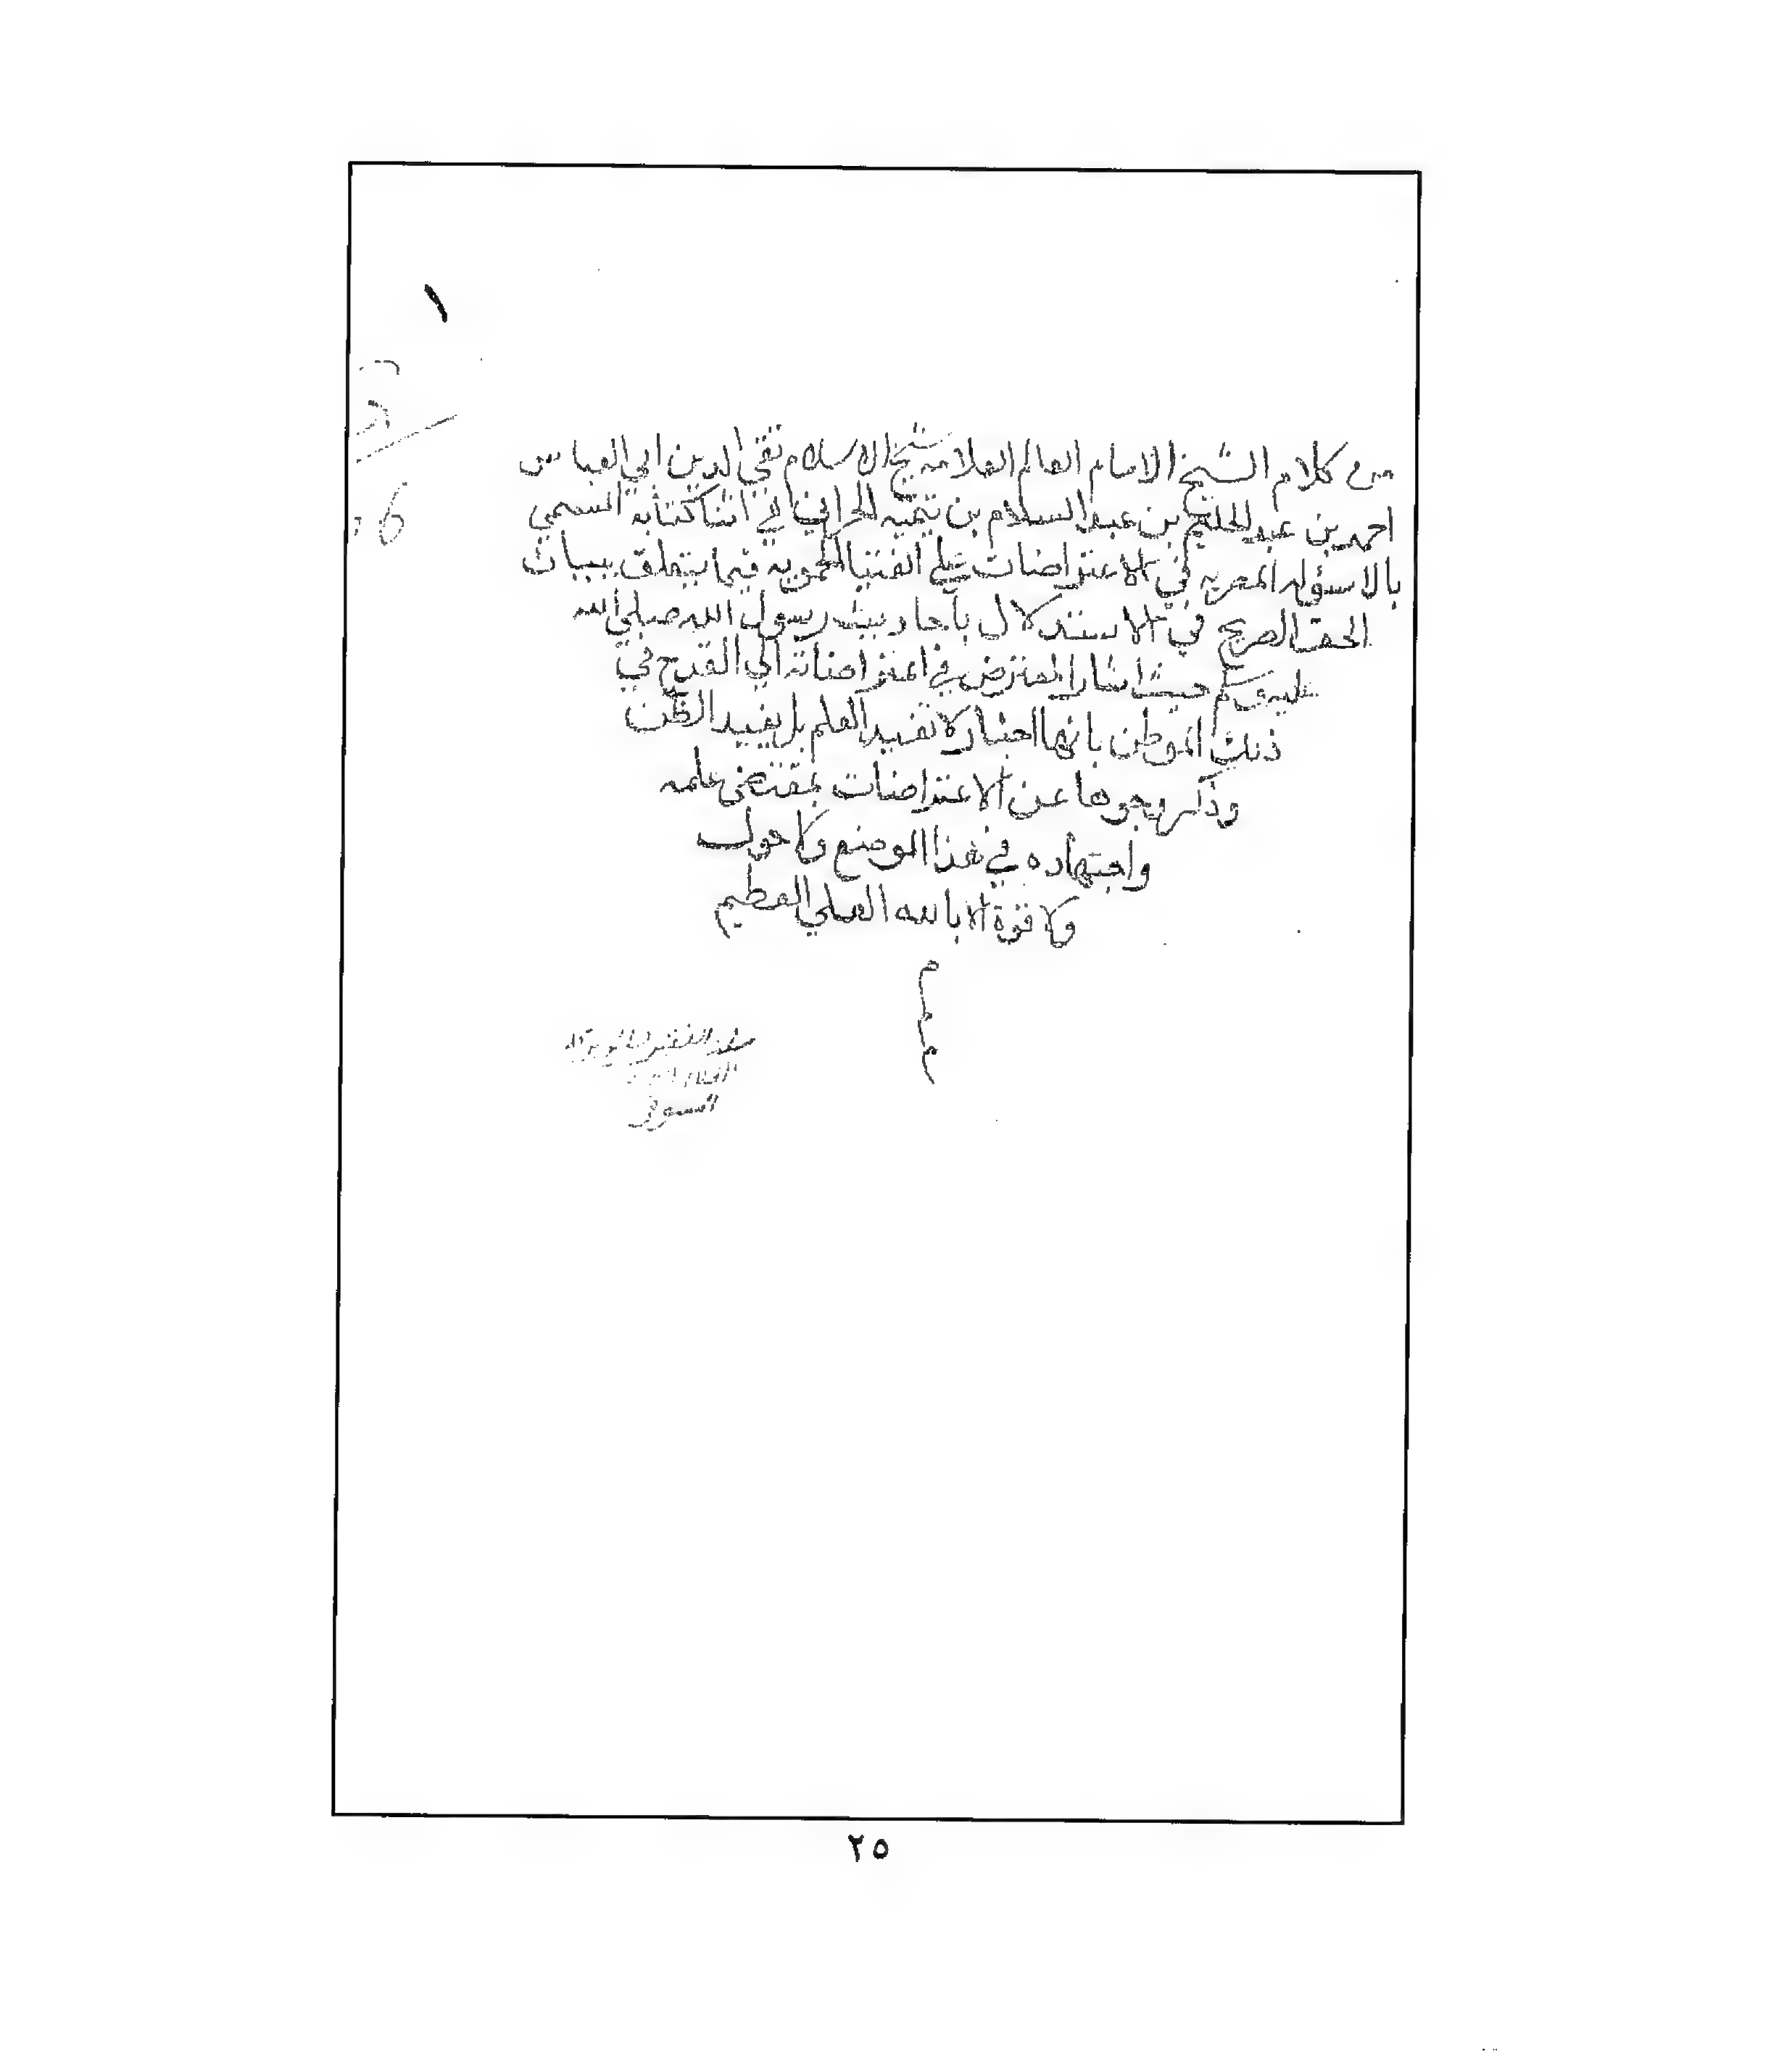 ١
من كلام الشيخ الامام العالم العلامه شيخ الاسلام تقي الدين ابي العباس
احمد بن عبد الحليم بن عبد السلام بن تيميه الحراني في اثنا كتابه المسمي
بالاسؤله المصريه في الاعتراضات علي الفتيا الحمويه فيما يتعلق ببيان
الحق الصريح في الاستدلال باحاديث رسول الله صلي الله
عليه وسلم حيث اشار المعترض في اعتراضاته الي القدح في
ذلك الموطن بانها اخبار لا تفيد العلم بل يفيد الظن
وذكر وجوها عن الاعتراضات بمقتضى علمه
واجتهاده في هذا الموضع ولا حول
ولا قوة الا بالله العلي العظيم
٢٥